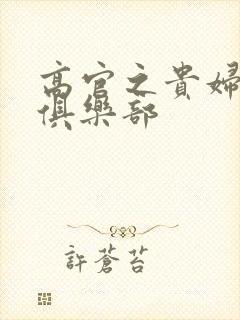 高官之貴婦
俱樂部
許蒼苔